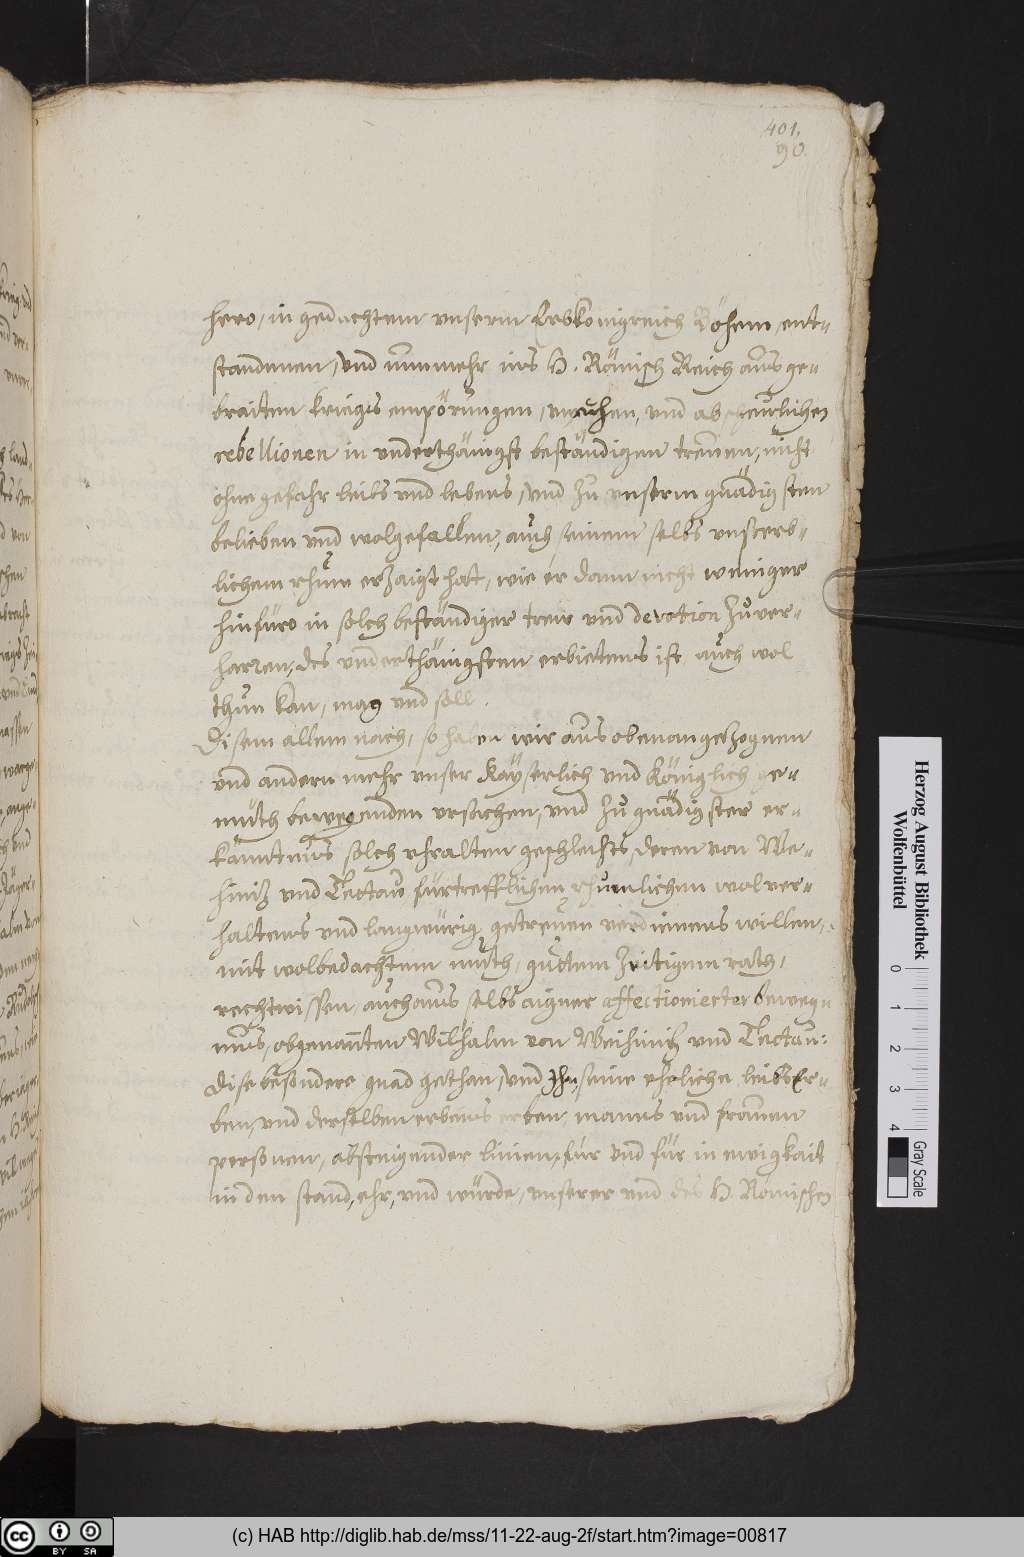 401.
90.
hero, in gedachtem unserm Erbkönigreich Böhem, ent-
standenen, und nunmehr ins H. Römisch Reich ausge-
braiten kriegs empörungen, unruhen, und abscheurlichen
rebellionen in underthänigst beständigen trewen, nicht
ohne gefahr leibs und lebens, und zu unserm gnädigsten
belieben und wolgefallen, auch seinem selbs unsterb-
lichem rhum erzaigt hat, wie er dann nicht weniger
hinfüro in solch beständiger trew und devotion zu ver-
harren, des underthänigsten erbietens ist, auch wol
thun kan, mag und soll.
Disem allem nach, so haben wir aus obenangezognen
und andern mehr unser Kayserlich und Königlich ge-
müth bewegenden ursachen, und zu gnädigster er-
kantnus solch uhralten geschlechts deren von We-
hiniz und Tectau fürtrefflichen rhumlichen wolver-
haltens und langwürig getreuen verdienens willen,
mit wolbedachtem muth, guttem zeitigem rath,
recht wissen, auch aus selbs aigner affectionierter beweg-
nus, obgenanten Wilhalm von Wehiniz und Tectau:
dise besondere gnad gethan, und Ihn, seine eheliche leibs Er-
ben, und derselben erbens erben, manns und frawen
personen, absteigender linien, für und für in ewigkait
in den stand, ehr, und würde, unserer und des H. Römischen
Herzog August Bibliothek
Wolfenbüttel
0 1 2 3 4
Gray Scale
cc BY SA
(c) HAB http://diglib.hab.de/mss/11-22-aug-2f/start.htm?image=00817